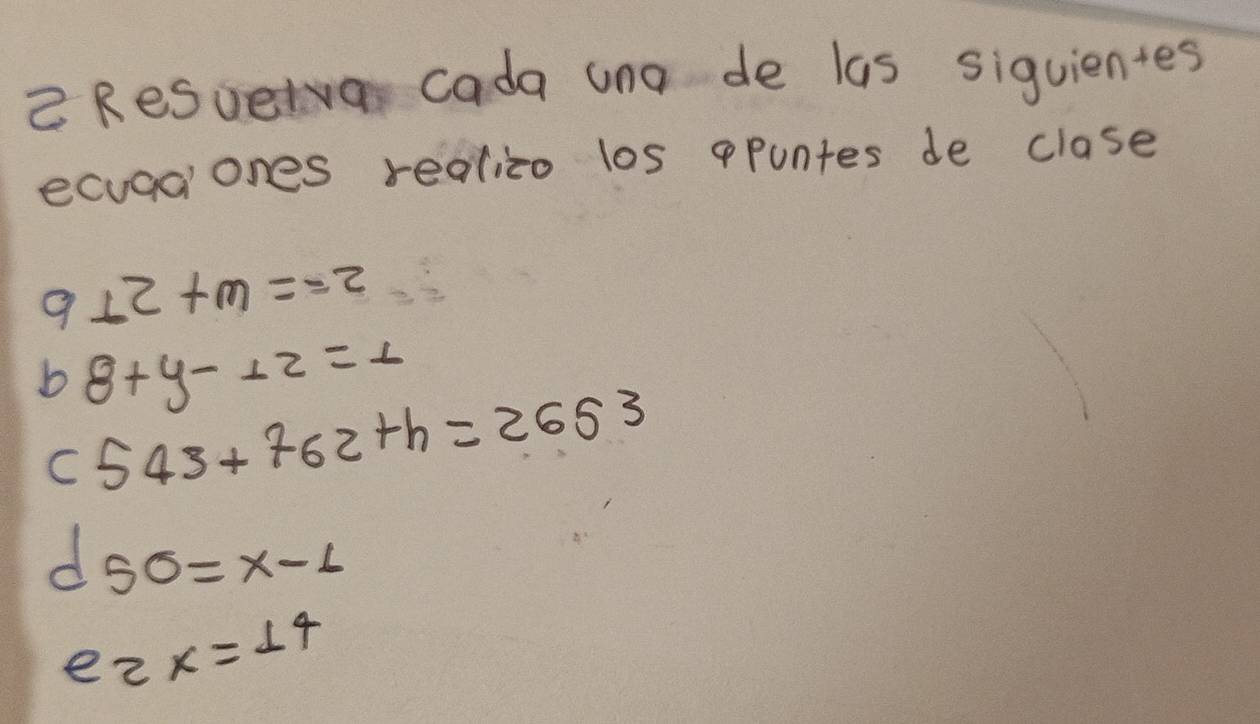 2 Resuelva cada una de las siguientes
ecuaciones realizo los apuntes de clase
a 12 + m = -2
b 8 + y - 12 = 1
c 543 + 762 + h = 2653
d 50 = x - 1
e 2x = 14